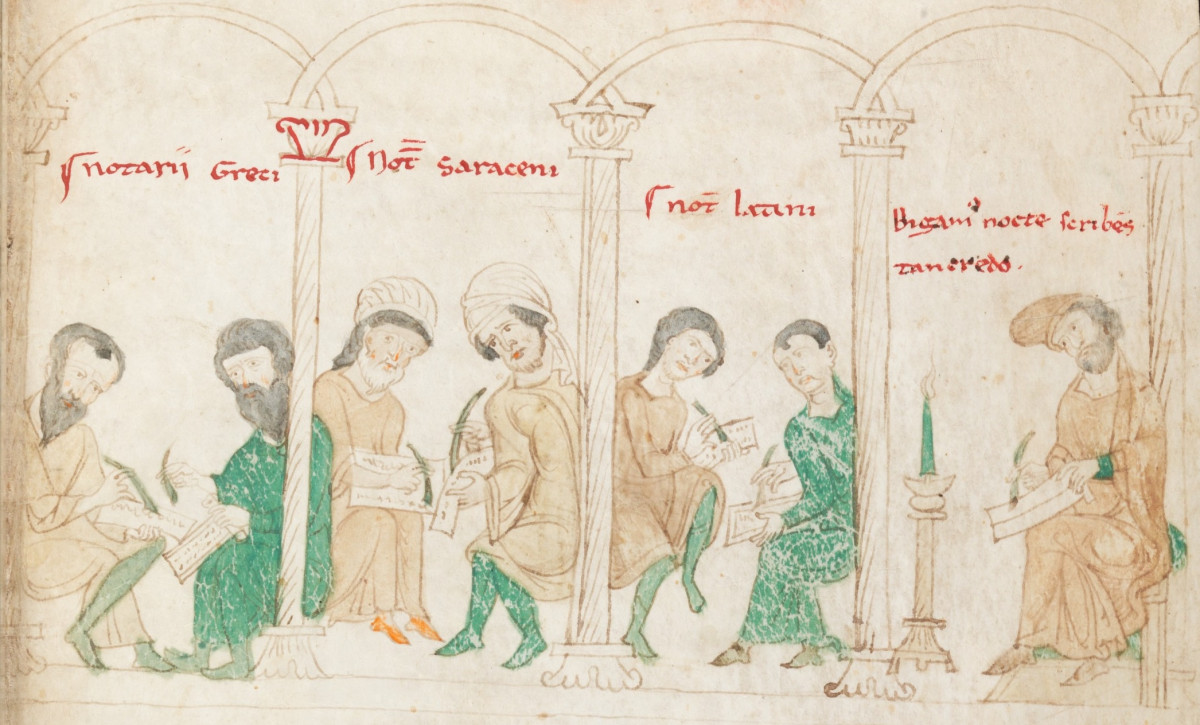 notarii Greci
Not̄ Saraceni
not̄ latini
Bigam̄ nocte scribēs
tancredo.